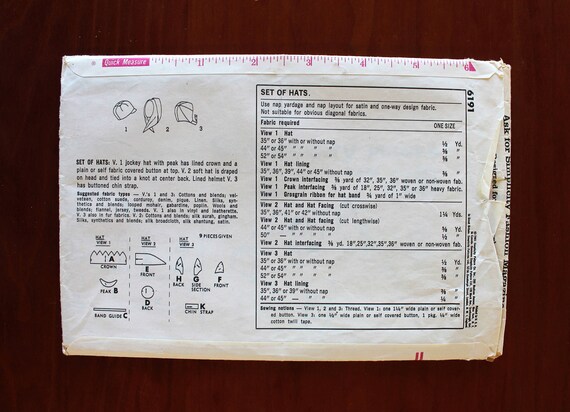 Quick Measure 1 2 3 4 5 6
1 2 3
SET OF HATS: V. 1 jockey hat with peak has lined crown and a
plain or self fabric covered button at top. V. 2 soft hat is draped
on head and tied into a knot at center back. Lined helmet V. 3
has buttoned chin strap.
Suggested fabric types - V.'s 1 and 3: Cottons and blends; vel-
veteen, cotton suede, corduroy, denim, pique. Linen. Silks, syn-
thetics and blends; looped mohair, gabardine, tweed. Wools and
blends; flannel, jersey, tweeds. V. 1 also in vinyl and leatherette.
V. 3 also in fur fabrics. V. 2: Cottons and blends; silk surah, gingham.
Silks, synthetics and blends; silk broadcloth, satin, shantung.
HAT VIEW 1
HAT VIEW 2
HAT VIEW 3
9 PIECES GIVEN
A
CROWN
PEAK B
BAND GUIDE C
E
FRONT
D
BACK
H
BACK
G
SIDE
SECTION
F
FRONT
K
CHIN STRAP
SET OF HATS.
Use nap yardage and nap layout for satin and one-way design fabric.
Not suitable for obvious diagonal fabrics.
Fabric required ONE SIZE
View 1 Hat
35" or 36" with or without nap Yd.
44" or 45" " " " " "
52" or 54" " " " " "
View 1 Hat lining
35", 36", 39", 44" or 45" with or without nap "
View 1 Crown interfacing yard of 32", 35", 36" woven or non-woven fab.
View 1 Peak interfacing yard of 18", 25", 32", 35" or 36" heavy fabric.
View 1 Grosgrain ribbon for hat band ¾ yard of 1" wide
View 2 Hat and Hat facing (cut crosswise)
35", 36", 41" or 42" without nap 1¼ Yds.
View 2 Hat and Hat facing (cut lengthwise)
44" or 45" with or without nap "
50" — " " " "
View 2 Hat interfacing yd. 18",25",32",35",36" woven or non-woven fab.
View 3 Hat
35" or 36" with or without nap Yd.
44" or 45" " " " " "
52" or 54" " " " " "
View 3 Hat lining
35", 36" or 39" without nap "
44" or 45" — " " "
Sewing notions - View 1, 2 and 3: Thread. View 1: one 1¼" wide plain or self cover-
ed button. View 3: one ½" wide plain or self covered button, 1 pkg. ¼" wide
cotton twill tape.
6191
Ask for Simplicity